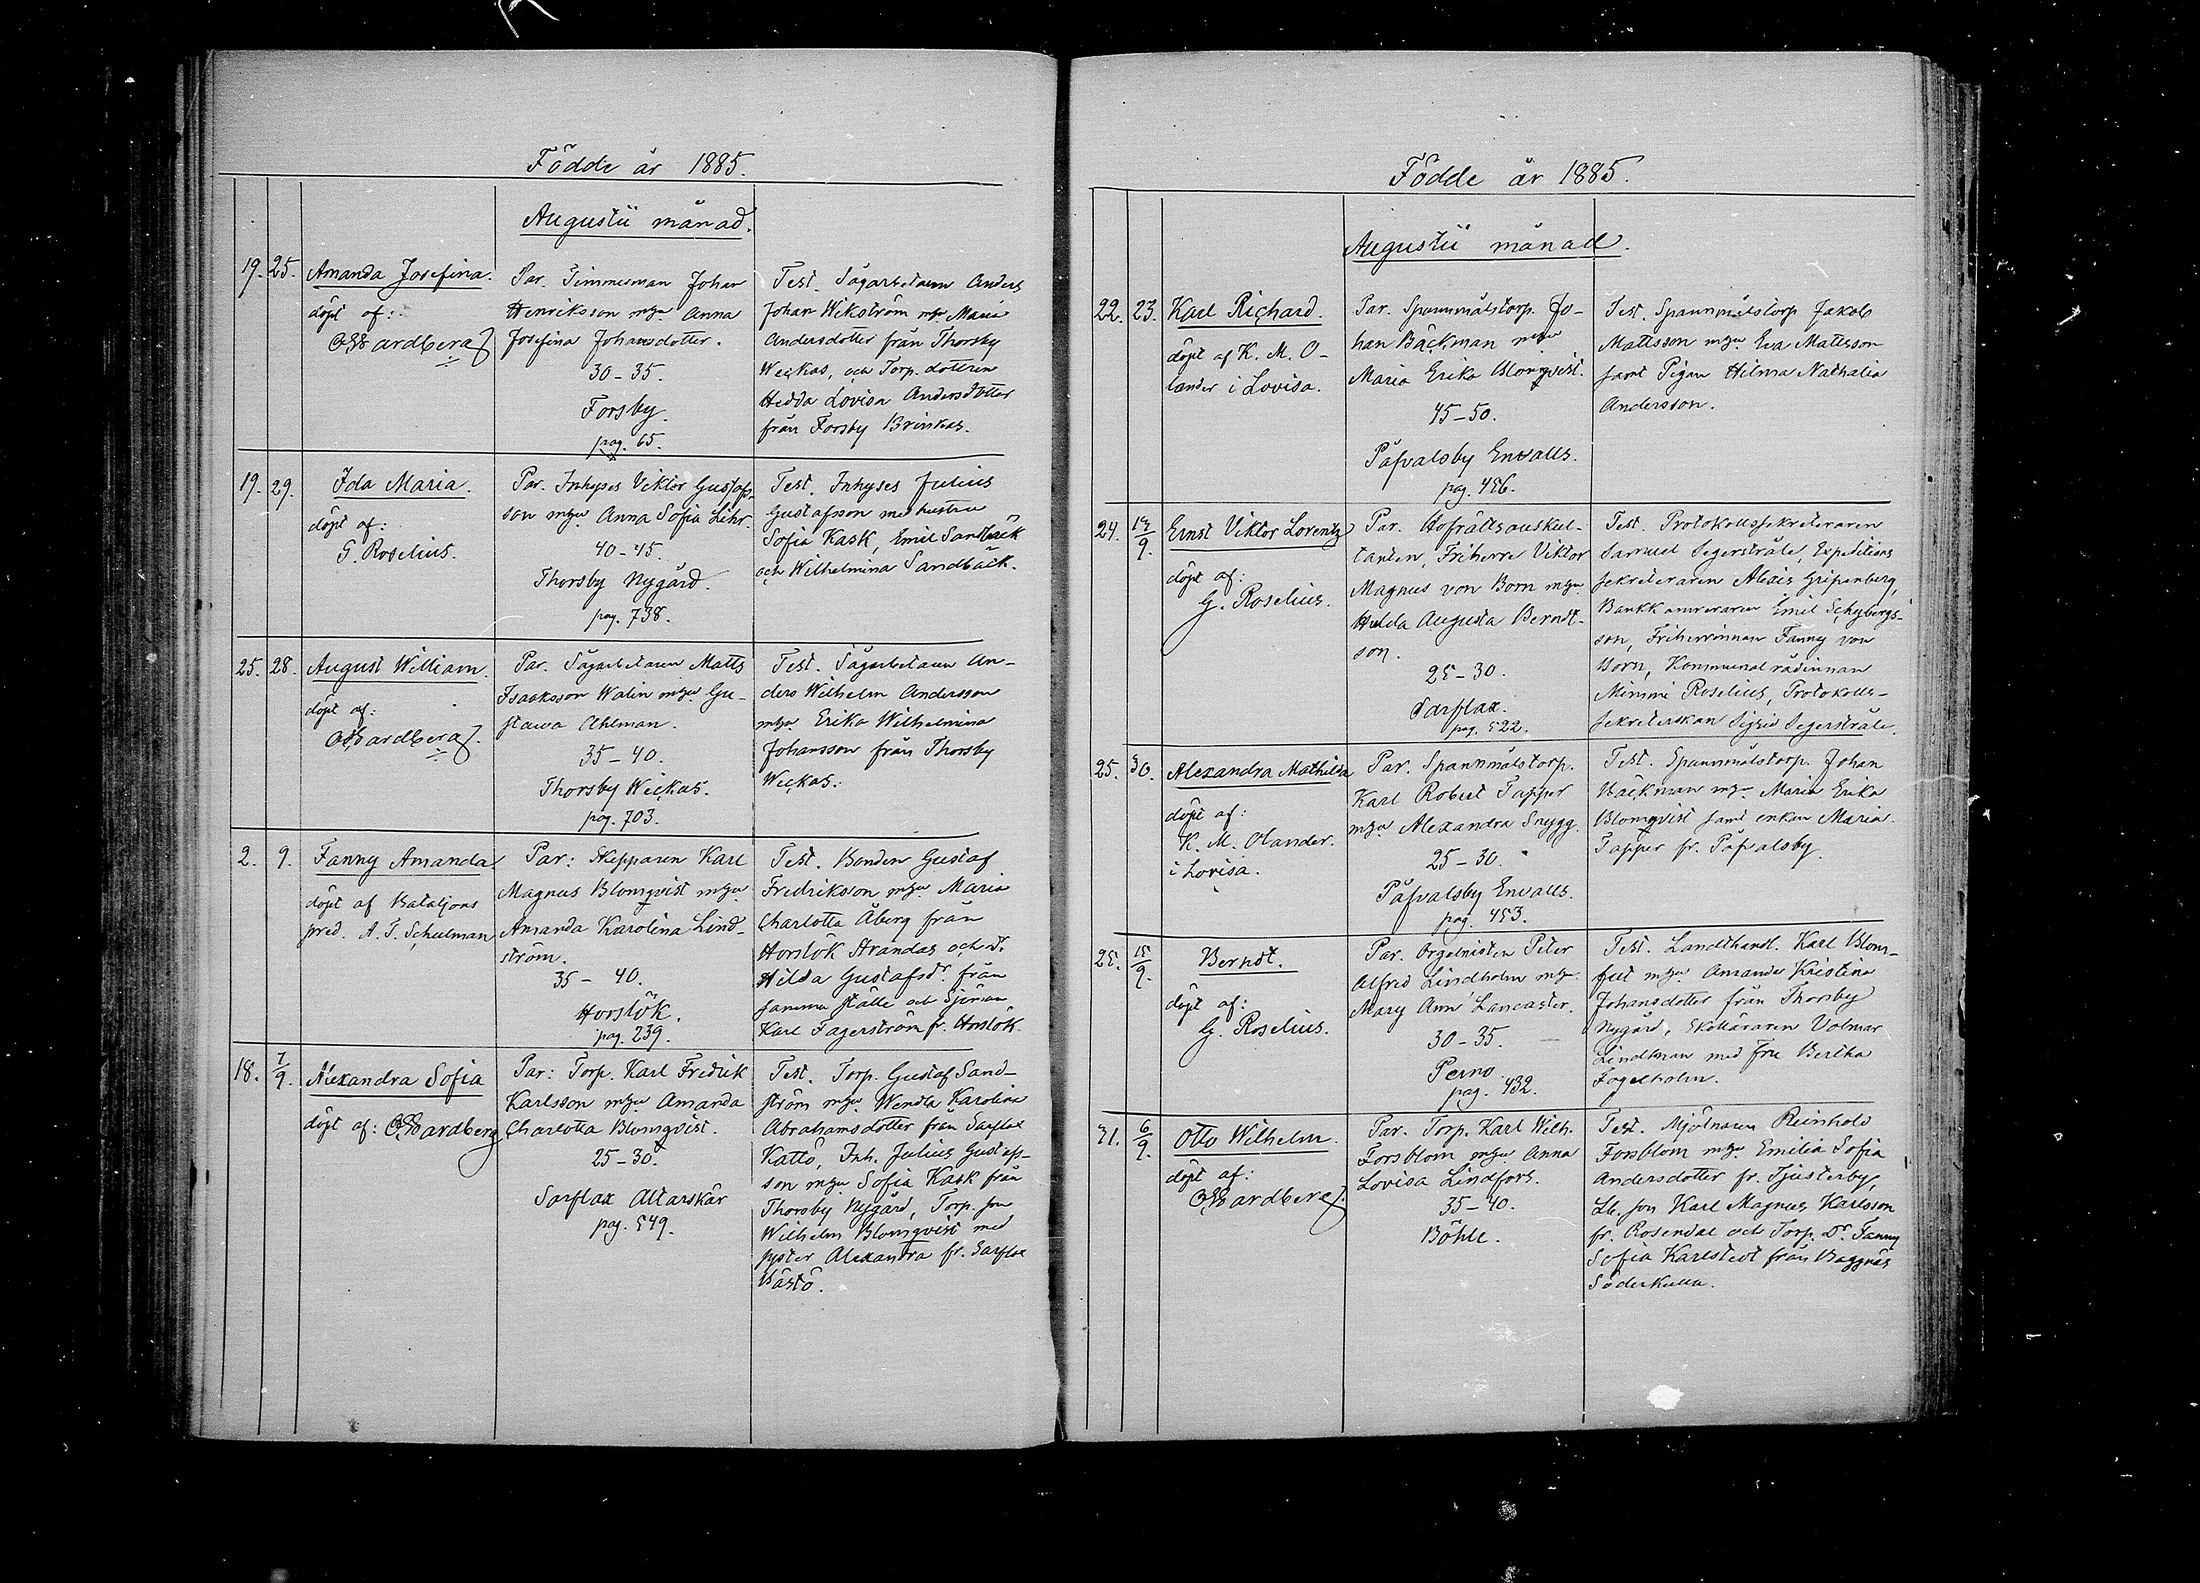 Födde år 1885.
Augustii månad.
19. 25. Amanda Josefina.
döpt af:
Par. Timmerman Johan
Henriksson m hu Anna
Josefina Johansdotter.
30-35.
Forsby.
pag. 65.
Test. Sågarbetaren Anders
Johan Wikström m hu Maria
Andersdotter från Thorsby
Weckas, och Torp. dottren
Hedda Lovisa Andersdotter
från Forsby Brinkas.
19. 29. Ida Maria.
döpt af:
G. Roselius.
Par. Inhyses Viktor Gustafs-
son m hu Anna Sofia Lihr.
40-45.
Thorsby Nygård.
pag. 738.
Test. Inhyses Julius
Gustafsson med hustru
Sofia Kask, Emil Sandbäck
och Wilhelmina Sandbäck.
25. 28. August William.
döpt af:
Par. Sågarbetaren Matts
Isaaksson Walin m hu Gu-
stava Ahlman.
35-40.
Thorsby Weckas.
pag. 703.
Test. Sågarbetaren An-
ders Wilhelm Andersson
m hu Erika Wilhelmina
Johansson från Thorsby
Weckas.
2. 9. Fanny Amanda
döpt af Bataljons
pred. A. T. Schulman
Par: Skepparen Karl
Magnus Blomqvist m hu
Amanda Karolina Lind-
ström.
35-40.
Horslök.
pag. 239.
Test. Bonden Gustaf
Fredriksson m hu Maria
Charlotta Åberg från
Horslök Arandas och D.
Hilda Gustafsdr från
samma ställe och Sjöman
Karl Fagerström fr. Horslök.
18. 7/9. Alexandra Sofia
döpt af:
Par: Torp. Karl Fredrik
Karlsson m hu Amanda
Charlotta Blomqvist.
25-30.
Sarflax Altarskär
pag. 549.
Test. Torp. Gustaf Sand-
ström m hu Wendla Karolina
Abrahamsdotter från Sarflax
Kattö, Inh. Julius Gustafs-
son m hu Sofia Kask från
Thorsby Nygård, Torp. son
Wilhelm Blomqvist med
syster Alexandra fr. Sarflax
Bästö.
Födde år 1885.
Augustii månad.
22. 23. Karl Richard.
döpt af K. M. O-
lander i Lovisa.
Par. Spannmålstorp. Jo-
han Bäckman m hu
Maria Erika Blomqvist.
45-50.
Påfvalsby Envalls.
pag. 456.
Test. Spannmålstorp Jakob
Mattsson m hu Eva Mattsson
samt Pigan Hilma Nathalia
Andersson.
24. Ernst Viktor Lorentz
döpt af:
G. Roselius.
Par. Hofrättsauskul-
tanten, Friherre Viktor
Magnus von Born m hu
Hulda Augusta Berndt-
son.
25-30.
Sarflax.
pag. 522.
Test. Protokollssekreteraren
Samuel Segerstråle, Expeditions
sekreteraren Alexis Gripenberg,
Bankkamreraren Emil Schybergs-
son, Friherrinnan Fanny von
Born, Kommunalrådinnan
Mimmi Roselius, Protokolls-
sekreterskan Sigrid Segerstråle.
25. 30. Alexandra Mathilda
döpt af:
K. M. Olander.
i Lovisa.
Par. Spannmålstorp.
Karl Robert Tapper
m hu Alexandra Snygg.
25-30.
Påfvalsby Envalls.
pag. 453.
Test. Spannmålstorp. Johan
Bäckman m hu Maria Erika
Blomqvist samt enkan Maria
Tapper fr. Påfvalsby.
25. 15/9. Berndt.
döpt af:
G. Roselius.
Par. Orgelnisten Peter
Alfred Lindholm m hu
Mary Ann Lancaster.
30-35.
Perno
pag. 432.
Test. Landthandl. Karl Blom-
m hu Amanda Kristina
Johansdotter från Thorsby
Nygård, Skolläraren Volmar
Lindman med Fru Bertha
Fogelholm.
31. 6/9. Otto Wilhelm.
döpt af:
Par. Torp. Karl Wilh.
Forsblom m hu Anna
Lovisa Lindfors.
35-40.
Böhle.
Test. Mjölnaren Reinhold
Forsblom m hu Emilia Sofia
Andersdotter fr. Tjusterby,
Lb. son Karl Magnus Karlsson
fr. Rosendal och Torp. Dr. Fanny
Sofia Karlstedt från Baggnäs
Söderkulla.